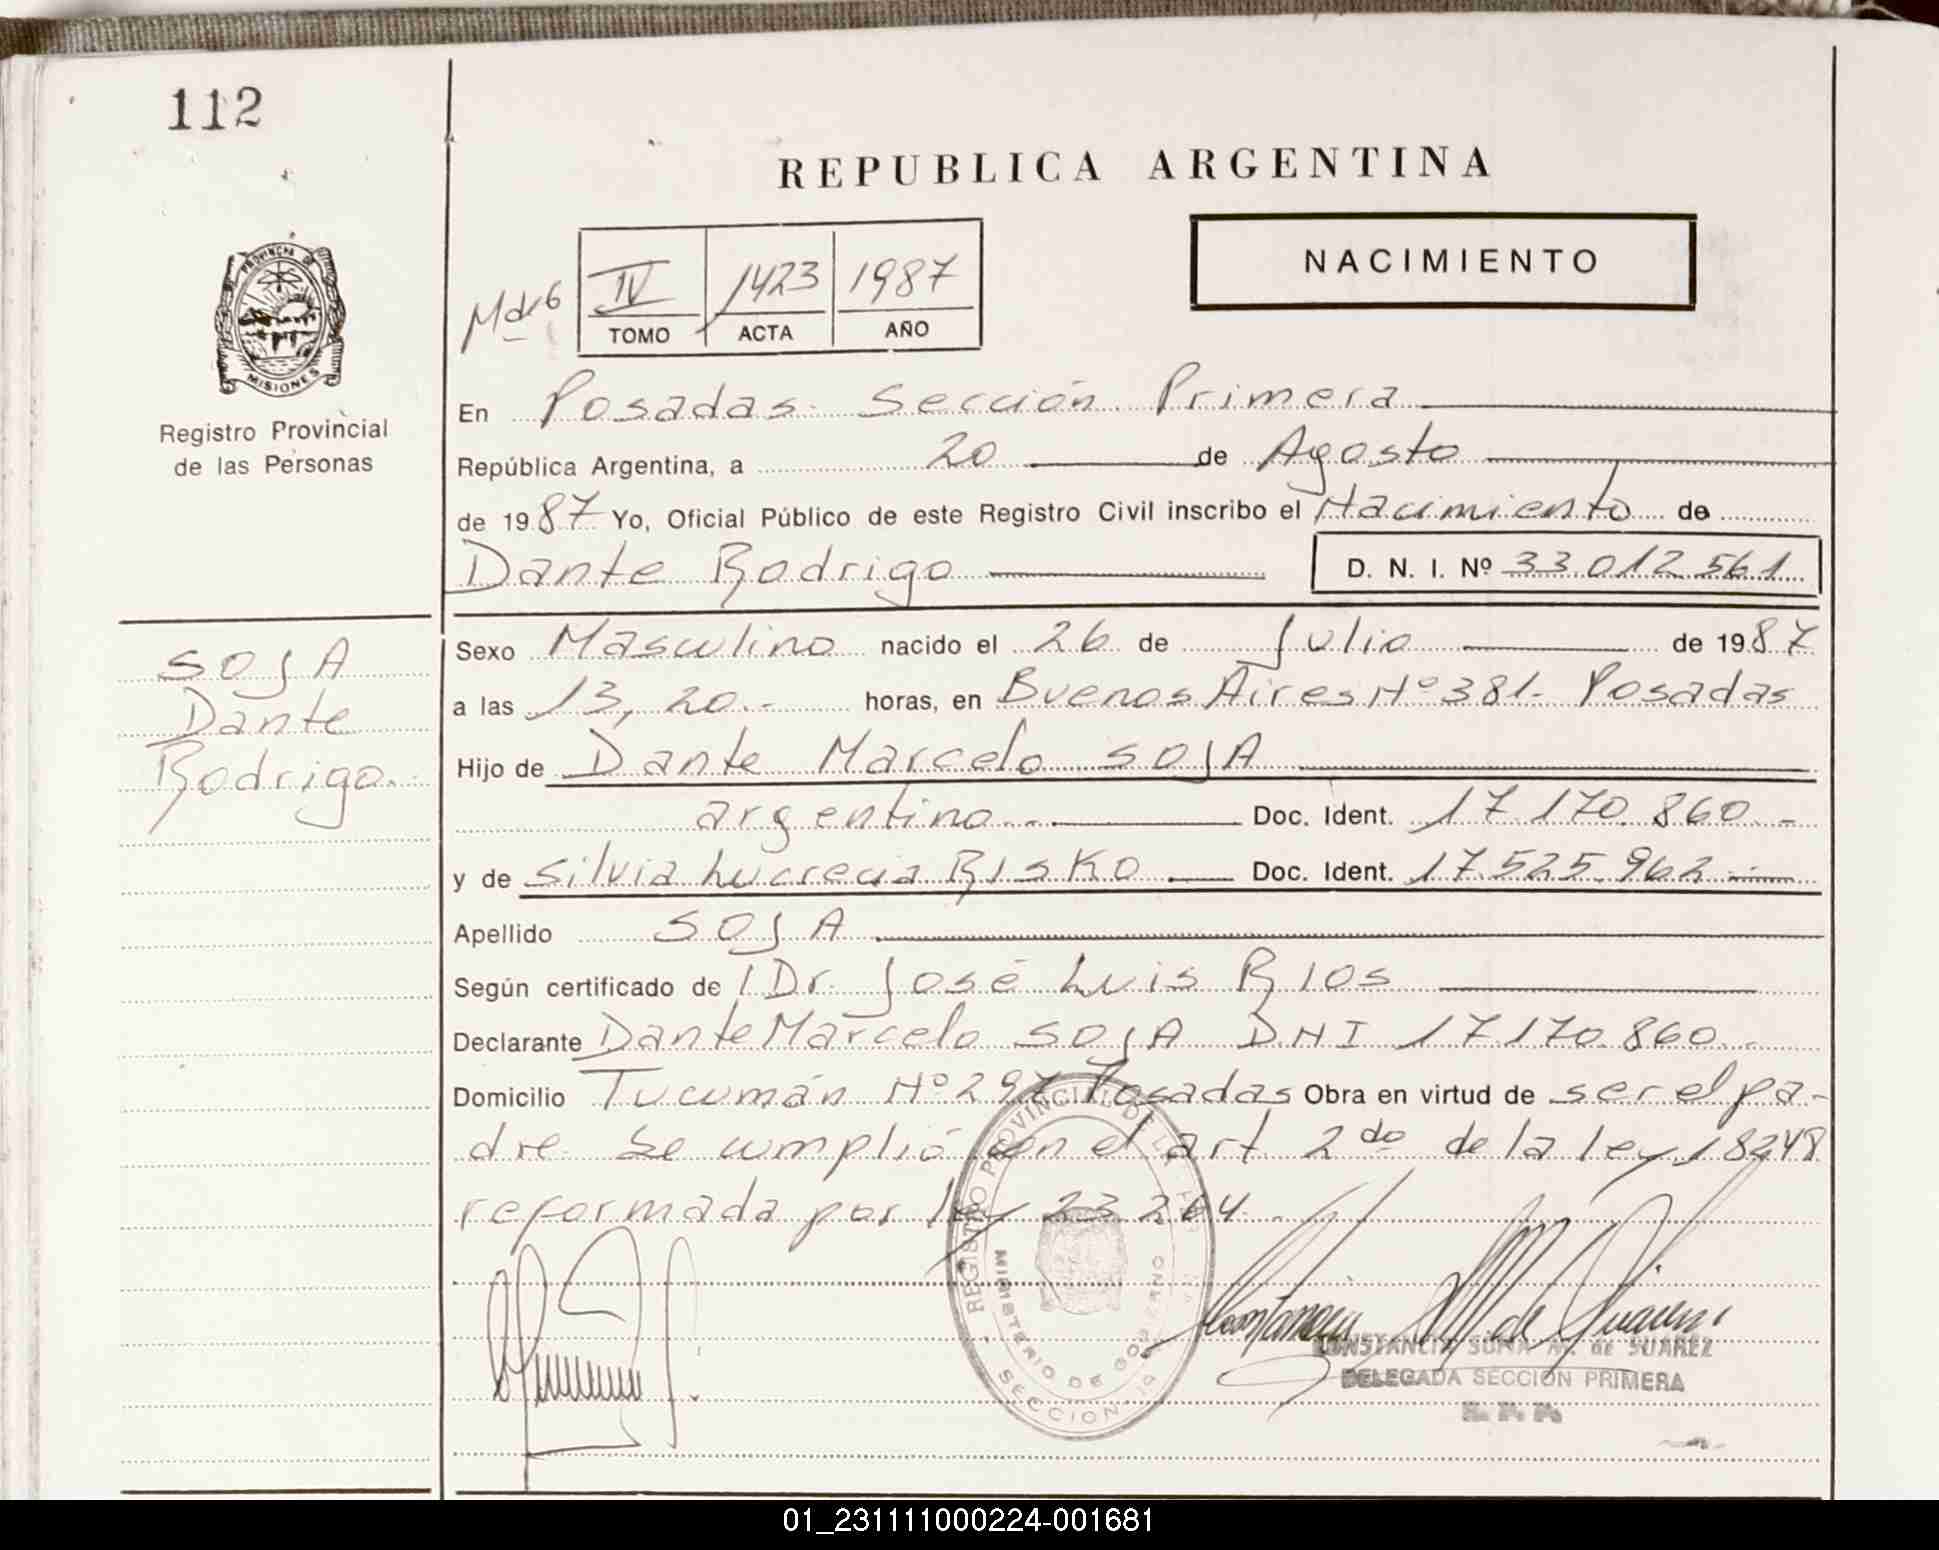 112
REPUBLICA ARGENTINA
NACIMIENTO
IV 1423 1987
TOMO ACTA AÑO
PROVINCIA DE
MISIONES
Registro Provincial
de las Personas
En Posadas Sección Primera
República Argentina, a 20 de Agosto
de 1987 Yo, Oficial Público de este Registro Civil inscribo el Nacimiento de
Dante Rodrigo D. N. I. Nº 33.012.561
SOSA
Dante
Rodrigo.
Sexo Masculino nacido el 26 de Julio de 1987
a las 13,20.- horas, en Buenos Aires Nº 381- Posadas
Hijo de Dante Marcelo SOSA
argentino.- Doc. Ident. 17.170.860.-
y de Silvia Lucrecia RISKO Doc. Ident. 17.525.962.-
Apellido SOSA
Según certificado de Dr. José Luis RIOS
Declarante Dante Marcelo SOSA DNI 17.170.860.-
Domicilio Tucumán Nº 297 Posadas Obra en virtud de ser el pa-
dre. Se cumplió con el art. 2do de la ley 18248
reformada por ley 23.264.-
REGISTRO PROVINCIAL DE LAS
MINISTERIO DE GOBIERNO
SECCION 1a
CONSTANCIA SUNA M. de SUAREZ
DELEGADA SECCION PRIMERA
R. P. P.
01_231111000224-001681